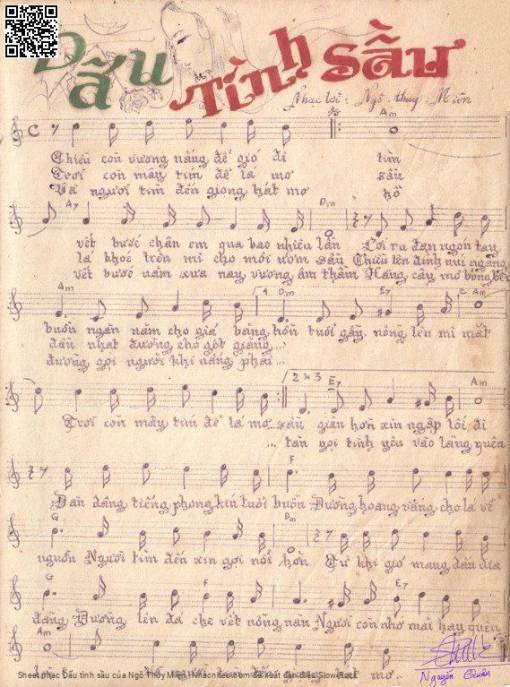 Dấu tình sầu
Nhạc lời: Ngô thụy Miên
C Am
Chiều còn vương nắng để gió đi tìm
Trời còn mây tím để lá mơ sầu
Và người tìm đến giọng hát mơ hồ
A7 Dm
vết bước chân em qua bao nhiêu lần Lời ru đan ngón tay
lá khóc trên mi cho môi ươm sầu Chiều lên đỉnh núi ngàn
vết bước năm xưa nay vương âm thầm Hàng cây mơ bóng
Am 1 Dm E7 Am
buồn ngàn năm cho giá băng hồn tuổi gầy nồng lên mi mắt
dấu nhạt đường cho gót
đường gọi người khi nắng phai...
2 3 E7 Am
Trời còn mây tím để lá mơ sầu giận hờn xin ngập lối đi
... tàn gọi tình yêu vào lãng quên
F
Đàn dâng tiếng phong kín tuổi buồn Đường hoang vắng cho lá về
G Dm
nguồn Người tìm đến xin gọi nỗi hờn Từ khi gió mang dấu địa
G F E7
đàng Đường lên đá che vết nồng nàn Người còn nhớ mãi hay quên
Am
Sheet nhạc Dấu tình sầu của Ngô Thụy Miên
Nguyễn Quân